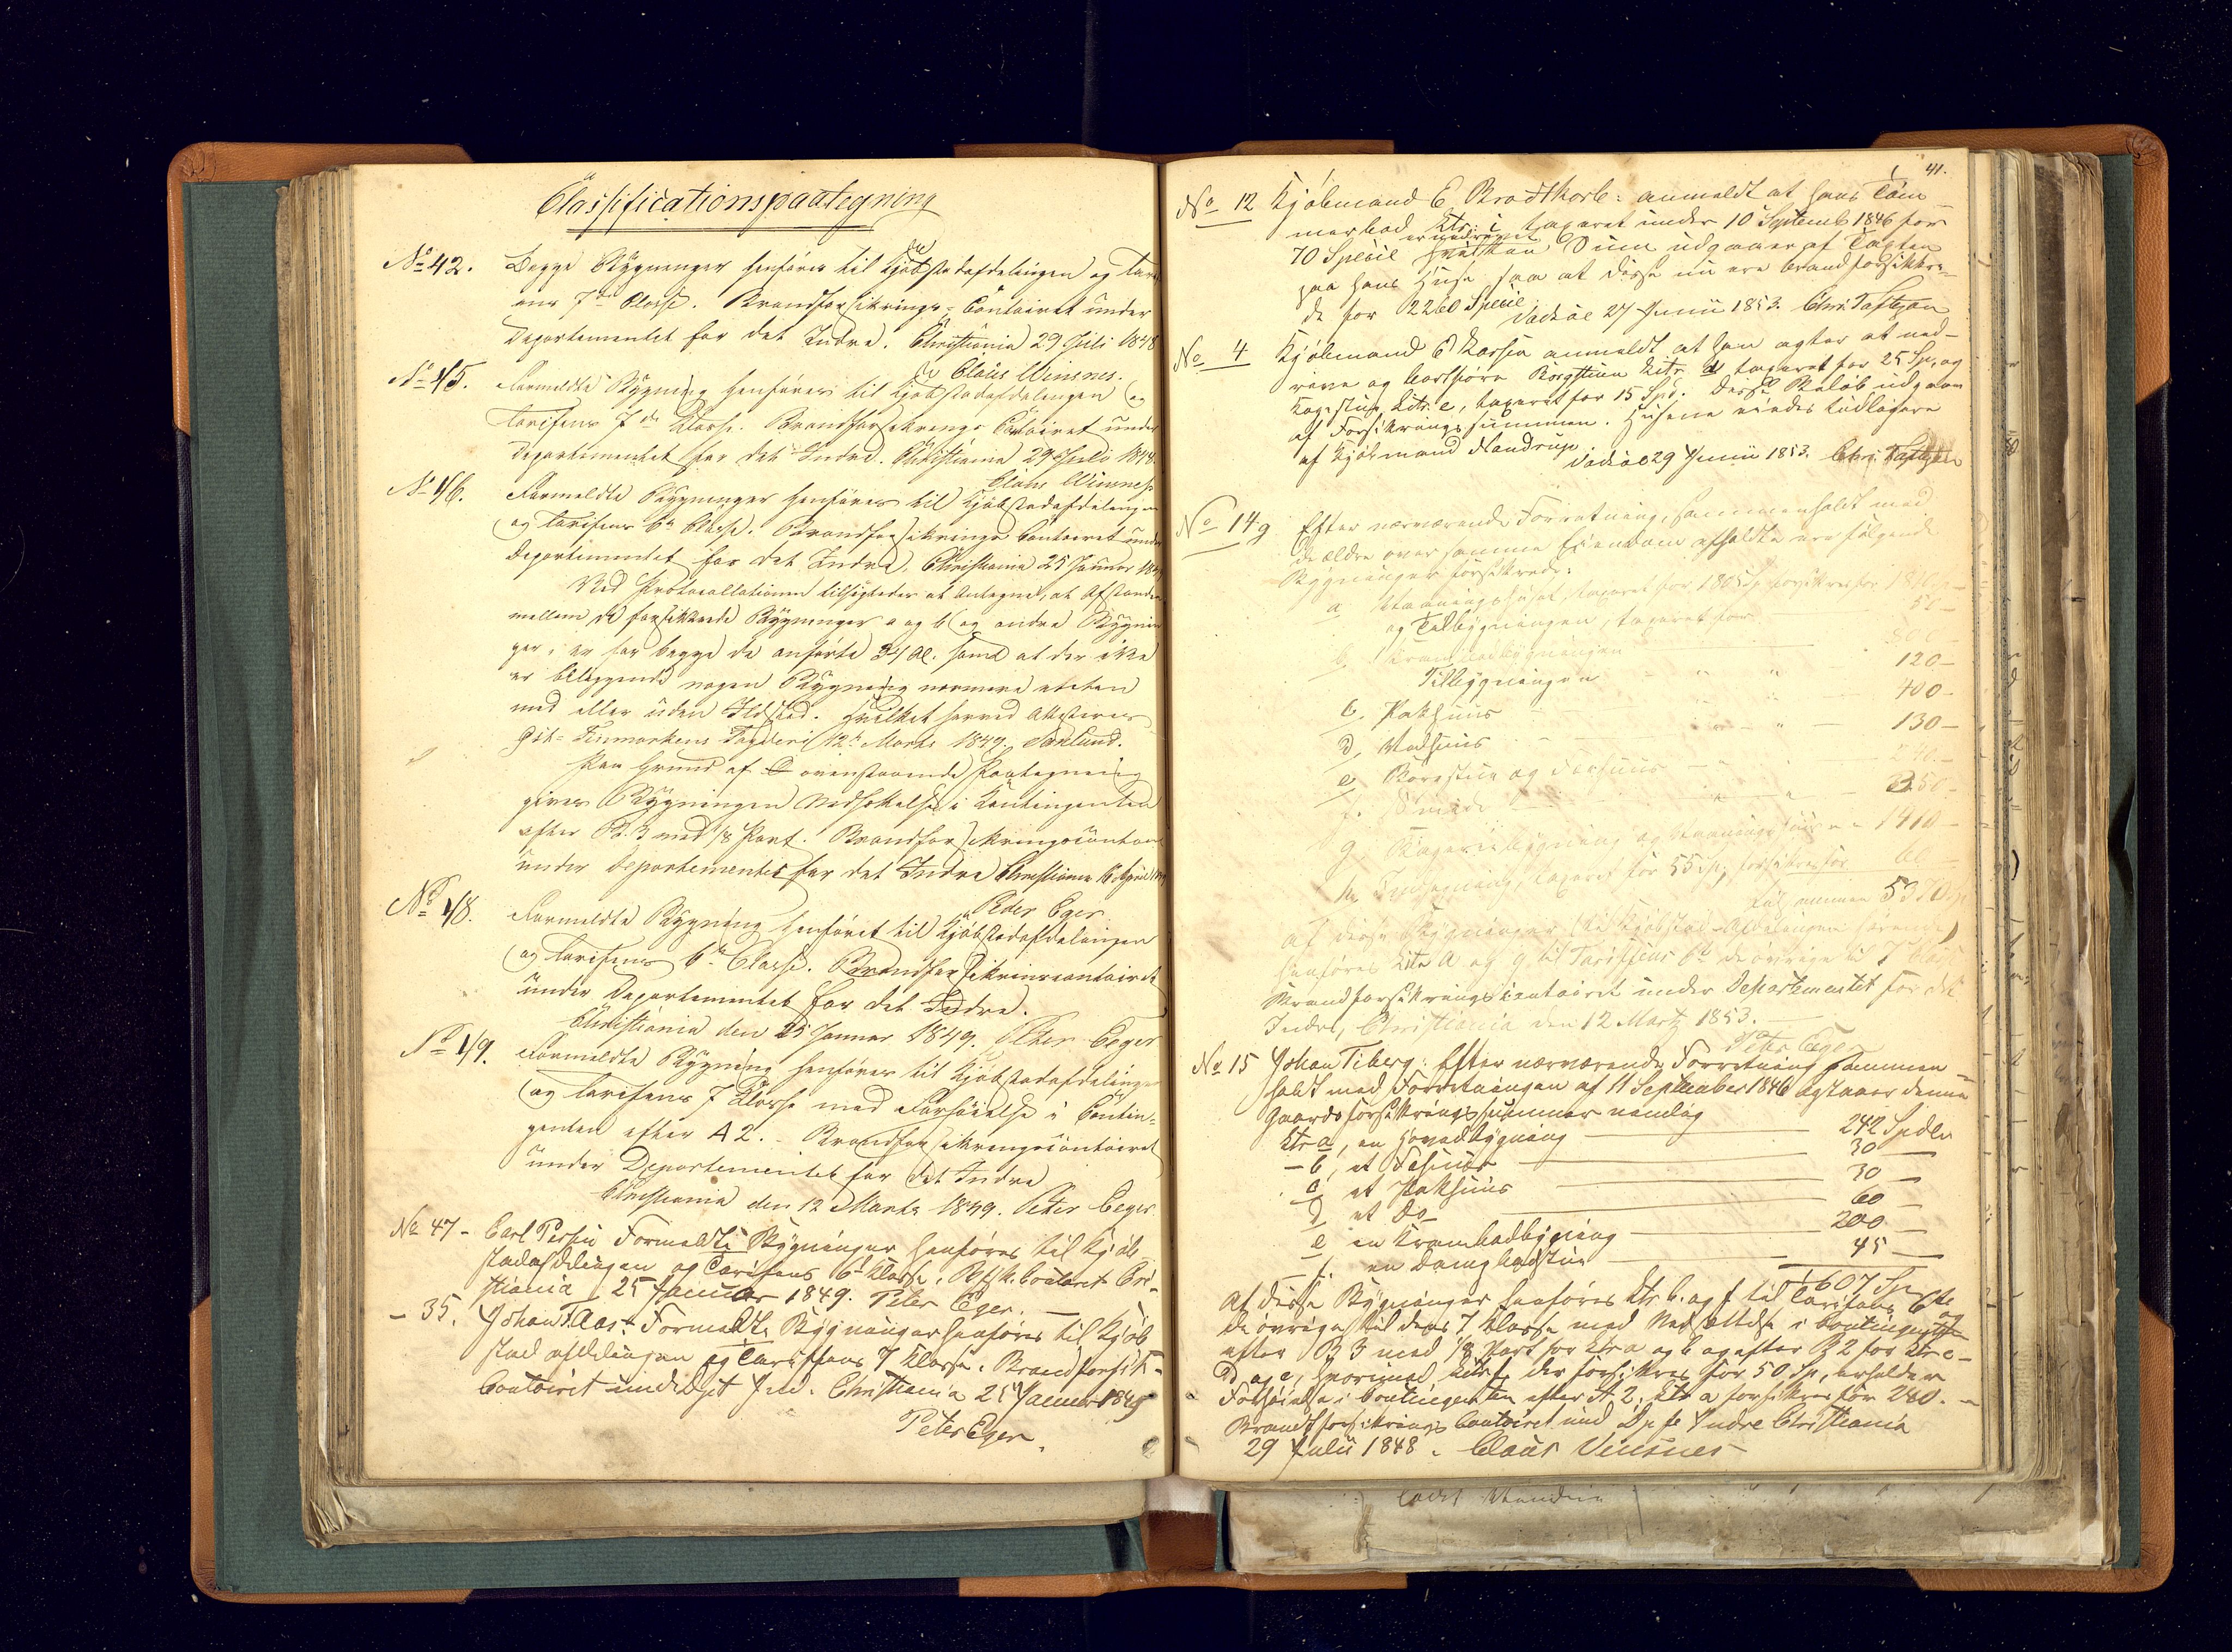 Classificationspaategning
No 42. Begge Bygninger henføres til Kjøbstadafdelingen og Tari
ens 7de Classe. Brandforsikrings-Contoiret under
Departementet for det Indre. Christiania 29 Juli 1848
Claus Winsnes.
No 45. Formeldte Bygning henføres til Kjøbstadafdelingen og
Tarifens 7de Classe. Brandforsikrings Contoiret under
Departementet for det Indre. Christiania 29 Juli 1848.
Claus Winsnes
No 46. Formeldte Bygninger henføres til Kjøbstadafdelingen
og Tarifens 6te Classe. Brandforsikrings Contoiret under
Departementet for det Indre. Christiania 25 Januar 1849
Ved Protocollationen tilføjedes at Antegne, at Afstanden
mellem de forsikkrede Bygninger a og b og andre Bygnin
ger i er for begge de anførte 34 Al. samt at der ikke
er beliggende nogen Bygning nærmere etsten
med eller uden Ildsted. Hvilket herved Attesteres
Øst-Finmarkens Fogderi 12te Marts 1849.
Paa Grund af ovenstaaende Paategning
gives Bygningen Nedsættelse i Contingenten
efter B. 3 med 1/8 Part. Brandforsikringscontoiret
under Departementet for det Indre Christiania 16 April 1849
Peder Eger
No 48. Formeldte Bygning henføres til Kjøbstadafdelingen
og Tarifens 6te Classe. Brandforsikringscontoiret
under Departementet for det Indre.
Christiania den 25 Januar 1849. Peter Eger
No 49. Formeldte Bygning henføres til Kjøbstadafdelingen
og Tarifens 7 Classe med Forhøielse i Contin-
genten efter A 2. - Brandforsikringscontoiret
under Departementet for det Indre
Christiania den 12 Marts 1849. Peter Eger
No 47 - Carl Formeldte Bygninger henføres til Kjøb-
stadafdelingen og Tarifens 6te Classe. Contoiret Chri-
stiania 25 Januar 1849. Peter Eger. —
- 35. Johan Formeldte Bygninger henføres til Kjøb
stad afdelingen og Tariffens 7 Classe. Brandforsikr-
Contoiret Ind. Christiania 25 Januar 1849
Peter Eger.
41.
No 12 Kjøbmand C Brodtkorb: anmeldt at hans Tøm-
merbod Litr: i taxeret under 10 Septemb 1846 for
er nedrevet
70 Specie Sum udgaaer af Taxten
paa hans Huse saa at disse nu ere brandforsikkre-
de for 2260 Specie.
Vadsøe 27 Junii 1853. Chr.
No 4 Kjøbmand anmeldt at han agter at ned-
rive og bortføre Borgstuen Litr. d taxeret for 25 Sp, og
Litr. e, taxeret for 15 Spd. Disse Beløb udgaar
af Forsikringssummen. Husene eiedes tidligere
af Kjøbmand Nandrup.
Vadsøe 29 Junii 1853. Chr.
No 14. g Efter nærværende Forretning, sammenholdt med
de ældre over samme Eiendom afholdte ere følgende
Bygninger forsikrede:
a Vaaningshuset, taxeret for 1805 Sp forsikres for 1810 -
og Tilbygningen, taxeret for 50 -
b. Krambodbygningen 800 -
Tilbygningen " " 120 -
c. Pakhuus " 400 -
d. Vedhuus " 130 -
e Borgstue og Fæhuus 240. -
f. 350 -
g. Bageribygning og Vaaningshuus 1410 -
h. taxeret for 55 Sp, forsikres for 60 -
tilsammen 5370 Sp
Af disse Bygninger (til Kjøbstad-Afdelingen hørende)
henføres Litr A og g til Tariffens 6te de øvrige til 7 Classe
Brandforsikringscontoiret under Departementet for det
Indre, Christiania den 12 Marts 1853. —
Peter Eger
No 15 Johan Tiberg: Efter nærværende Forretning sammen-
holdt med Forretningen af 11 September 1846 udgjøer denne
Gaards forsikringssummer nemlig
Litr a, en Hovedbygning — 242 Spdlr
- b, et Fæhuus — 30 —
c, et Pakhuus — 30 —
d et Do — 60
e en Krambodbygning — 200 —
f. en — 45 —
607 Sp
Af disse Bygninger henføres Litr b. og f til Tarifens 6te
de øvrige til dens 7 Classe med Nedsættelse i Contingenten
efter B 3 med 1/8 Part for Litr a og b og efter B 2 for Litr c -
d og e, hvorimod Litr f, der forsikres for 50 Sp, erholder
Forhøielse i Contingenten efter A 2. Litr a forsikres for 240. -
Brandforsikrings Contoiret und Indre Christiania
29 Julii 1848. Claus Vinsnes